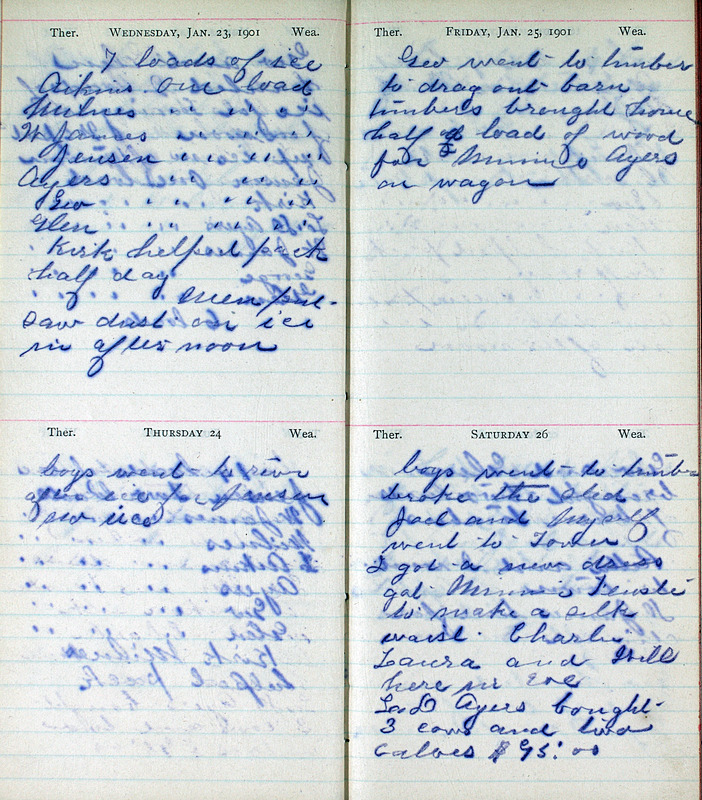 Ther. WEDNESDAY, JAN. 23, 1901 Wea.
7 loads of ice
Aikins one load
Milnes " " "
W James " " "
Jensen " " "
Ayers " " "
Geo " " "
Glen " " "
Kirk helped pack
half day
Men put
saw dust on ice
in afternoon
Ther. THURSDAY 24 Wea.
boys went to river
after ice for Jensen
no ice
Ther. FRIDAY, JAN. 25, 1901 Wea.
Geo went to timber
to drag out barn
timbers brought home
half of load of wood
for Minnie Ayers
on wagon
Ther. SATURDAY 26 Wea.
boys went to timber
broke the sled
Jack and Myself
went to Town
I got a new dress
got Minnie
to make a silk
waist. Charlie
Laura and Will
here in Eve
Ayers bought
3 cows and two
calves $95.00